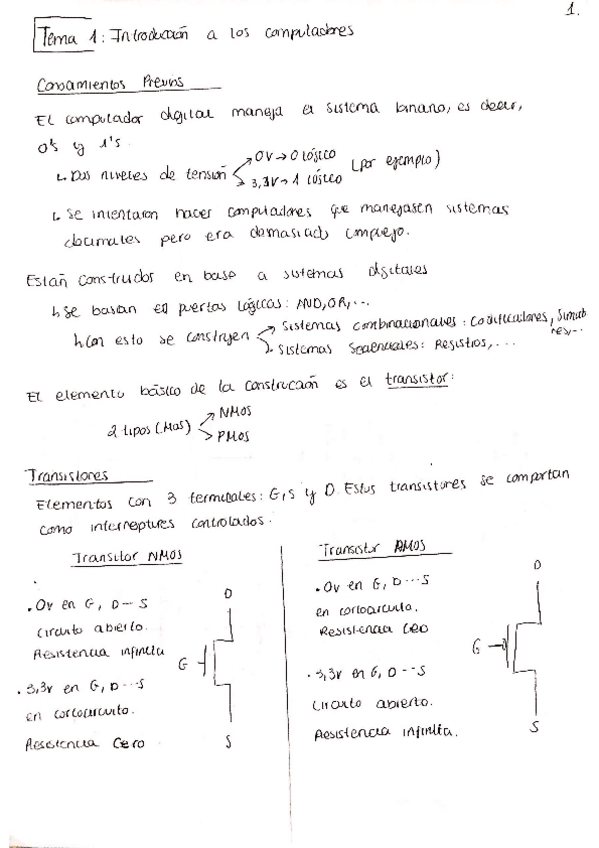 1.
Tema 1: Introducción a los computadores
Conocimientos Previos
El computador digital maneja el sistema binario, es decir,
0's y 1's.
↳ Dos niveles de tensión → 0V → 0 lógico (por ejemplo)
→ 3,3V → 1 lógico
↳ Se intentaron hacer computadores que manejasen sistemas
decimales pero era demasiado complejo.
Están construidos en base a sistemas digitales
↳ Se basan en puertas lógicas: AND, OR, ...
↳ Con esto se construyen → Sistemas combinacionales: Codificadores,
→ Sistemas Secuenciales: Registros, ...
El elemento básico de la construcción es el transistor:
2 tipos (MOS) → NMOS
→ PMOS
Transistores
Elementos con 3 terminales: G, S y D. Estos transistores se comportan
como interruptores controlados.
Transitor NMOS
. 0v en G, D--S
circuito abierto.
Resistencia infinita
. 3,3v en G, D---S
en cortocircuito.
Resistencia Cero
D
G
S
Transistor PMOS
. 0v en G, D---S
en cortocircuito.
Resistencia cero
. 3,3v en G, D--S
Circuito abierto.
Resistencia infinita.
D
G
S